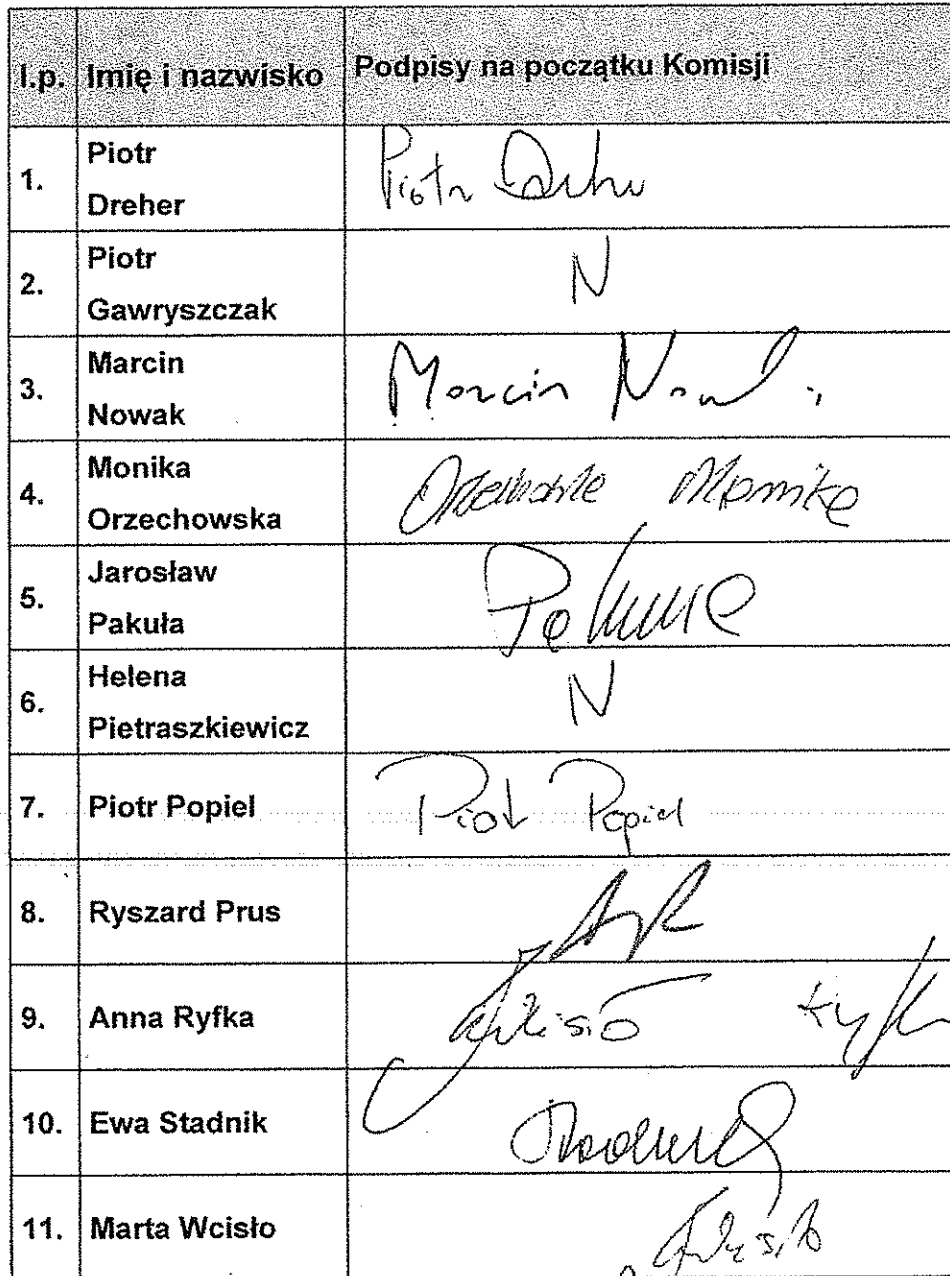 l.p. Imię i nazwisko Podpisy na początku Komisji
1. Piotr
Dreher Piotr
2. Piotr
Gawryszczak N
3. Marcin
Nowak Marcin Nowak
4. Monika
Orzechowska Monika
5. Jarosław
Pakuła
6. Helena
Pietraszkiewicz N
7. Piotr Popiel Piotr Popiel
8. Ryszard Prus
9. Anna Ryfka
10. Ewa Stadnik
11. Marta Wcisło